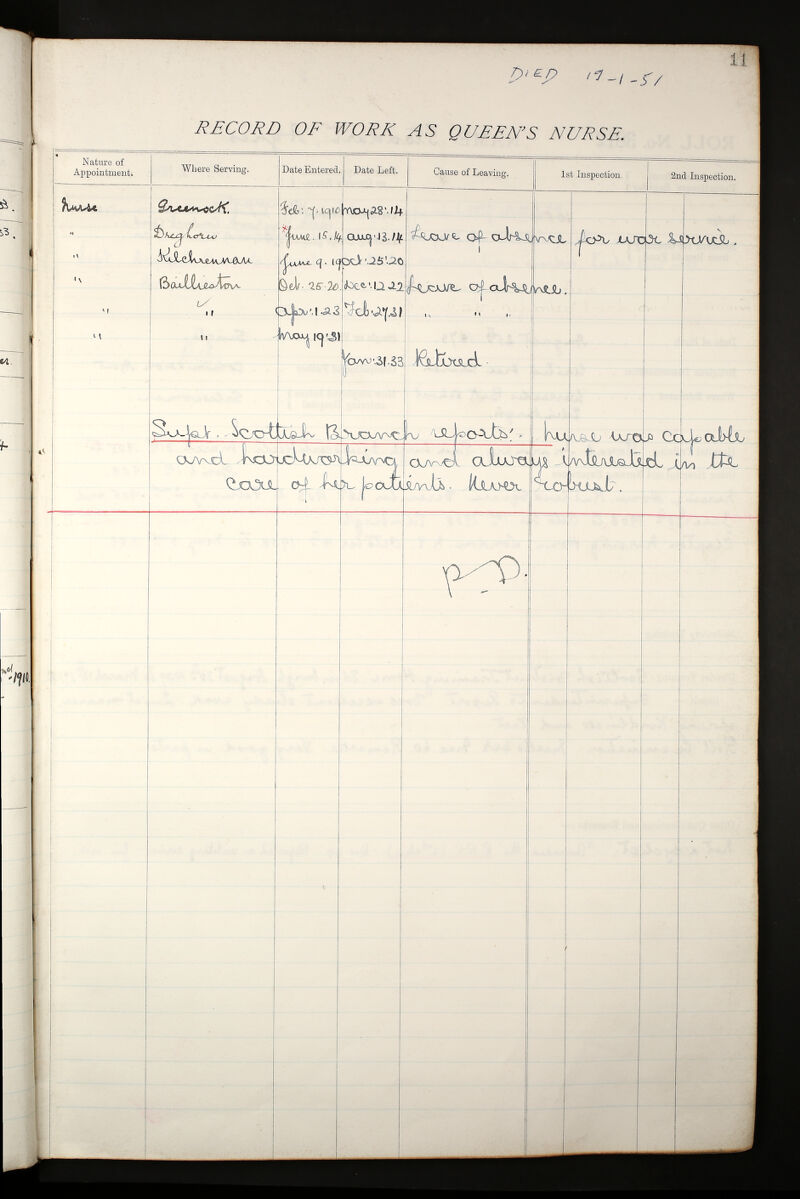 11
DIED 17-1-51
RECORD OF WORK AS QUEEN'S NURSE.
Nature of Appointment. Where Serving. Date Entered. Date Left. Cause of Leaving. 1st Inspection 2nd Inspection.
Nurse Greenock. Feb: 7. 1910 May 28'. 14
" Dreghorn June. 15. 14 Aug. 13. 14 Leave of absence for war service.
" Kilchrenan June 9. 19 Oct '.25'.20
" Baillieston Oct. 25. 20. Dec '.12.22 Leave of absence.
" " Apr'.1.23 Feb.27.31 " " "
" " May 19'.31
Jan'.31.33 Retired.
Supt. Scottish Branch reports'. Nurse was capable
and hardworking and always interested in the
care of her patients. Never robust.
1910.